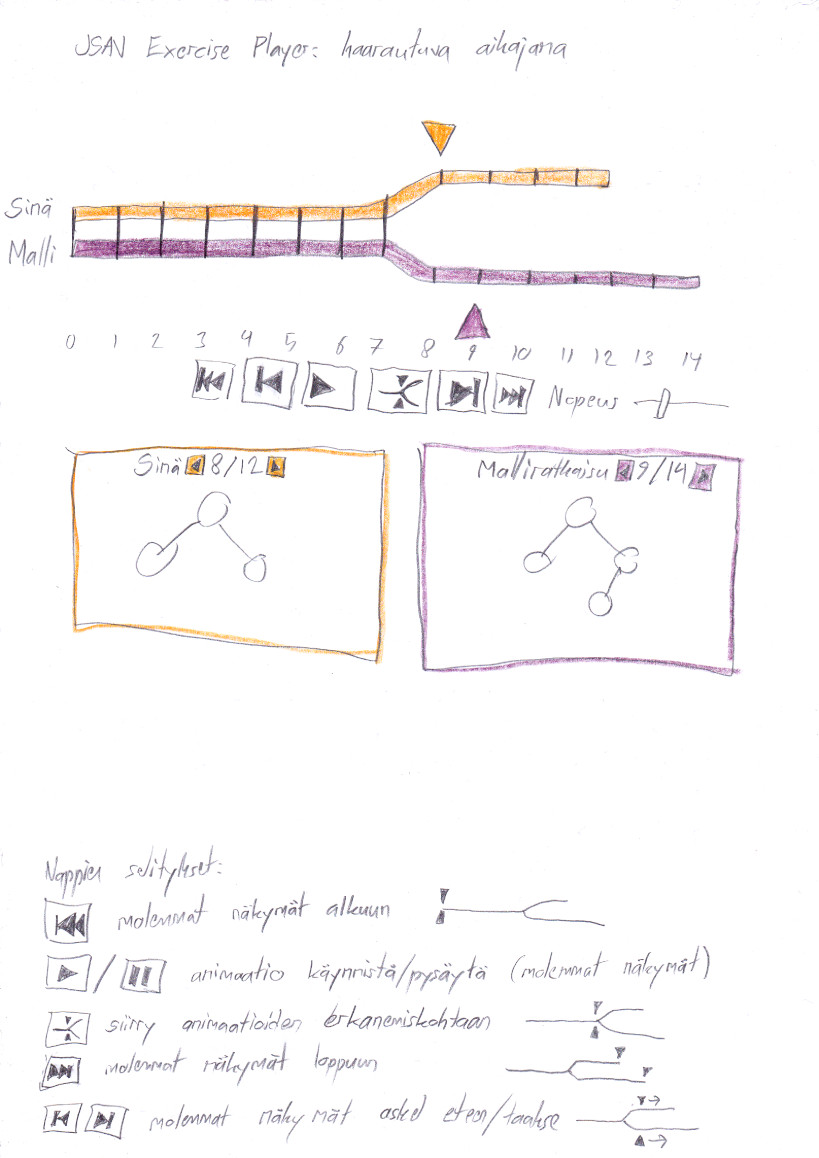 JSAV Exercise Player: haarautuva aikajana
Sinä
Malli
0 1 2 3 4 5 6 7 8 9 10 11 12 13 14
Nopeus
Sinä 8/12
Malliratkaisu 9/14
Nappien selitykset:
molemmat näkymät alkuun
/ animaatio käynnistä/pysäytä (molemmat näkymät)
siirry animaatioiden erkanemiskohtaan
molemmat näkymät loppuun
molemmat näkymät askel eteen/taakse